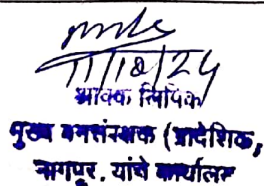 11/12/24
आवक लिपिक
मुख्य वनसंरक्षक (प्रादेशिक,
नागपूर. यांचे कार्यालय